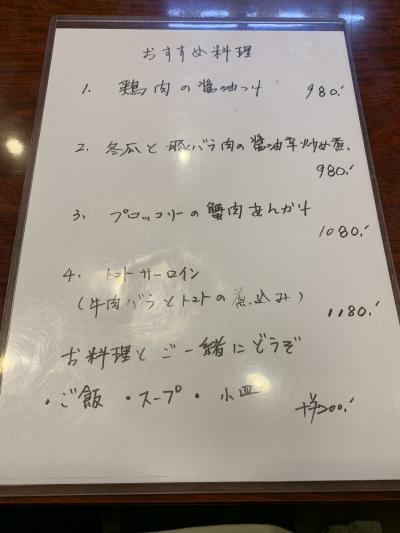 おすすめ料理
1. 鶏肉の醤油つけ 980.-
2. 冬瓜と豚バラ肉の醤油辛炒め煮.
980.-
3. ブロッコリーの蟹肉あんかけ
1080.-
4. トマトサーロイン
(牛肉バラとトマトの煮込み) 1180.-
お料理とご一緒にどうぞ
・ご飯 ・スープ ・小皿 +¥200.-